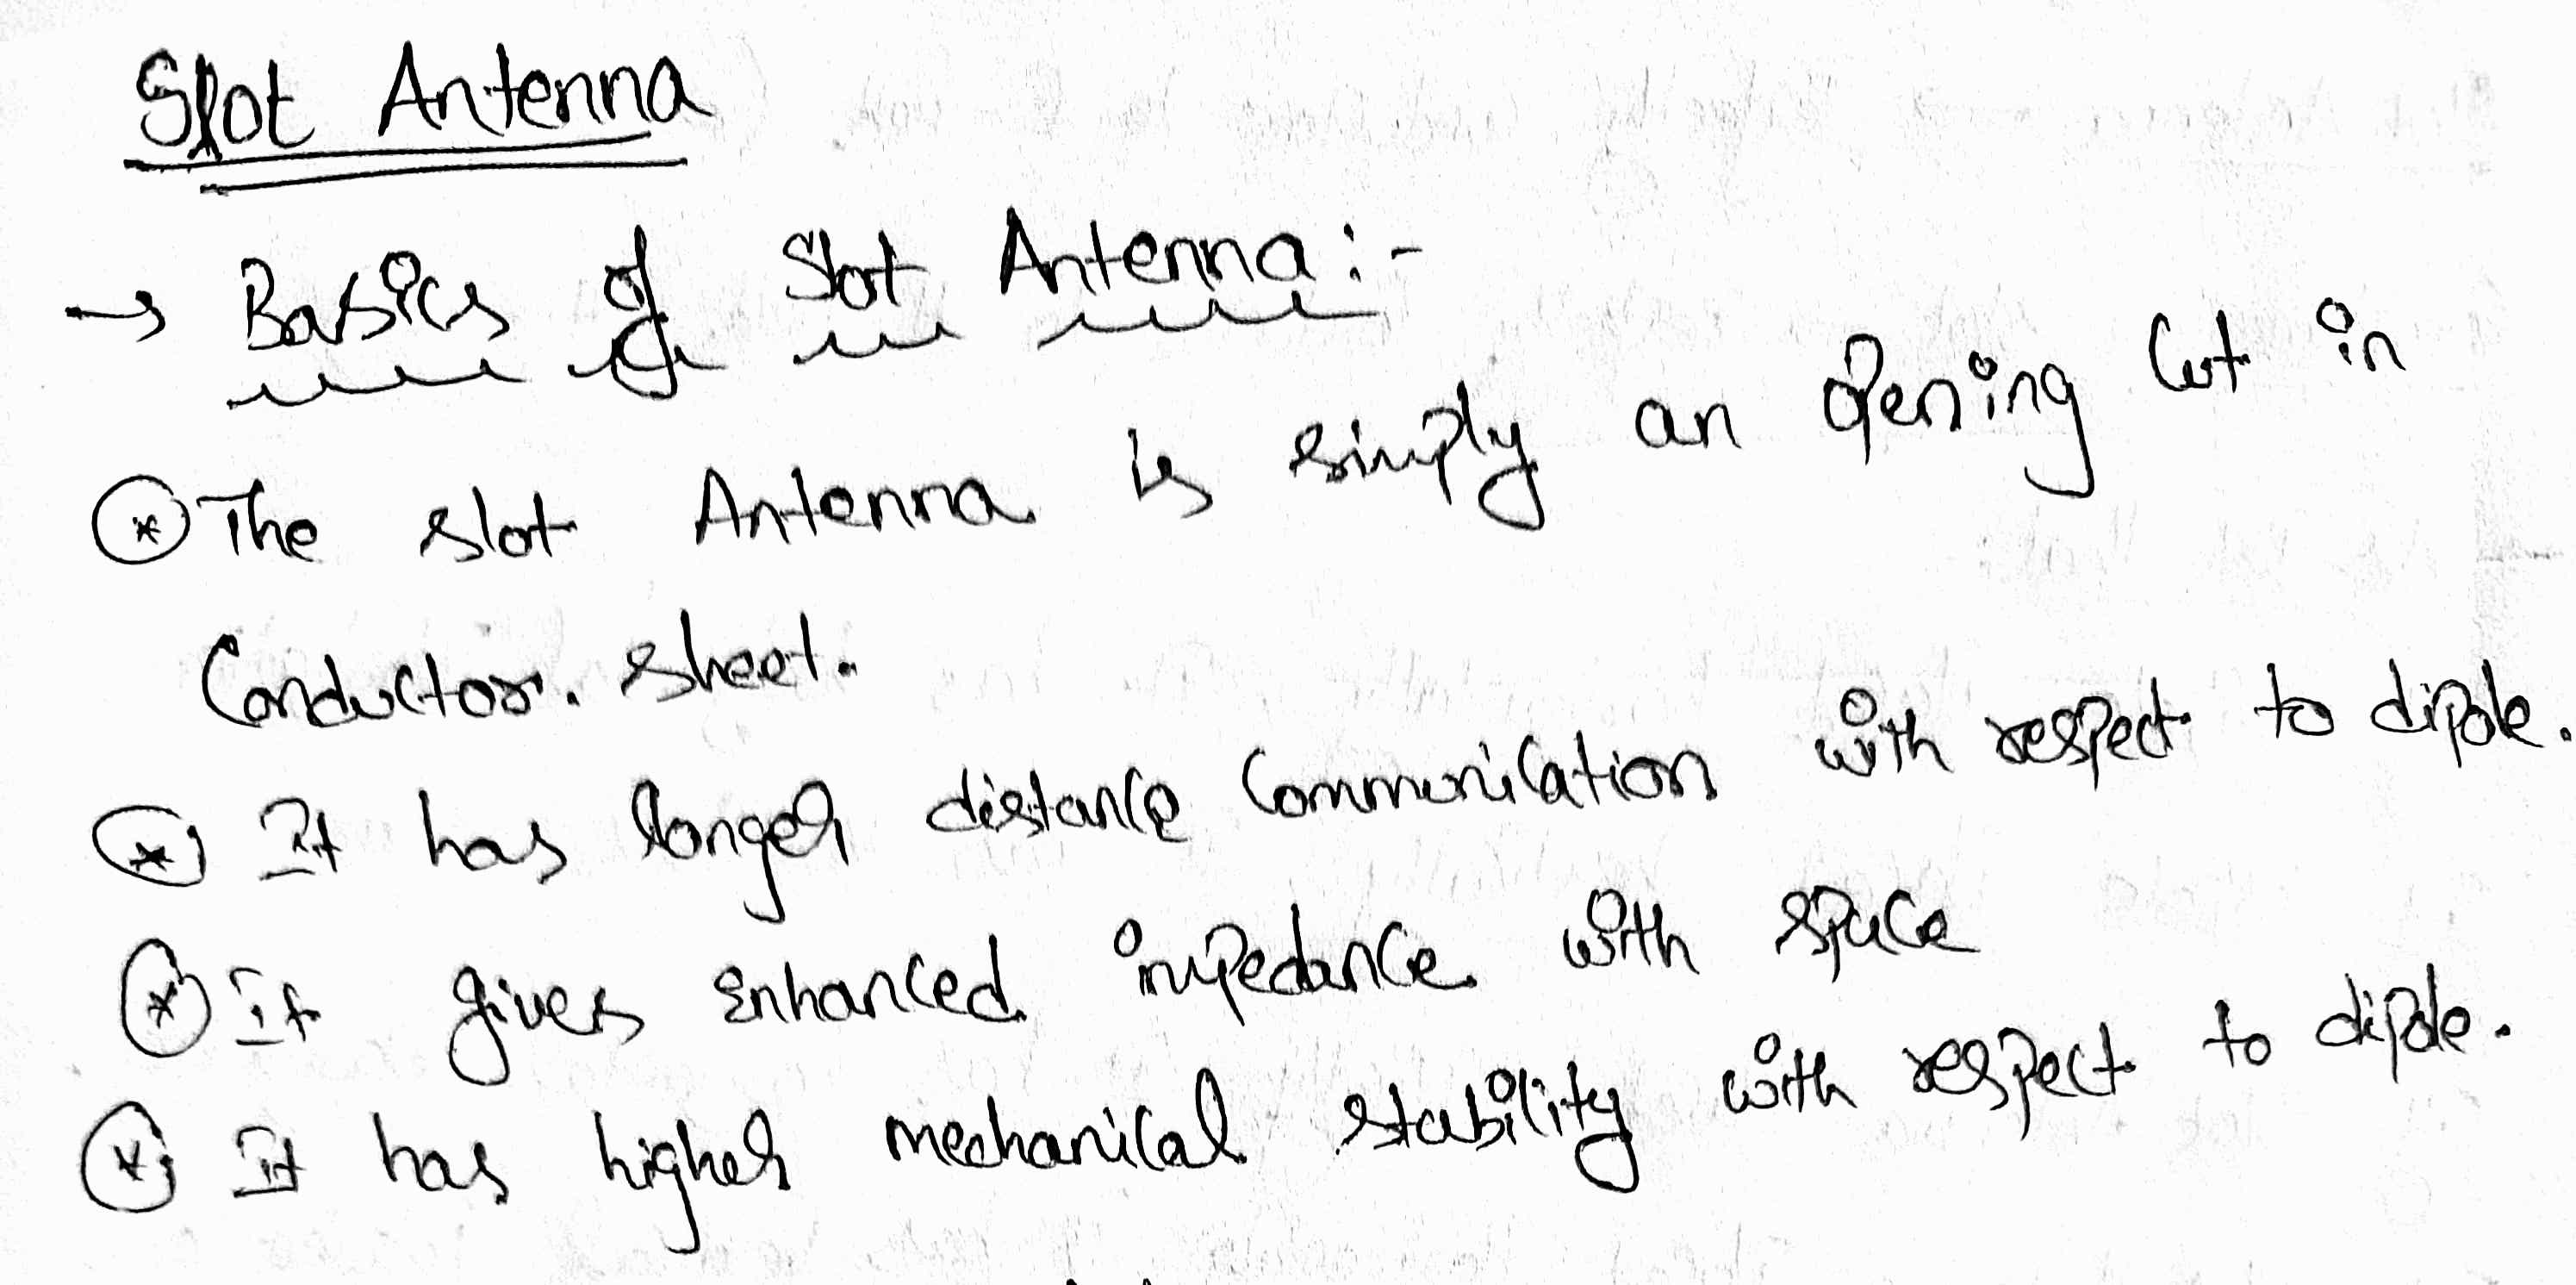 Slot Antenna
→ Basics of Slot Antenna:-
* The slot Antenna is simply an opening cut in
Conductor. sheet.
* It has longer distance communication with respect to dipole.
* It gives Enhanced impedance with space
* It has higher mechanical stability with respect to dipole.